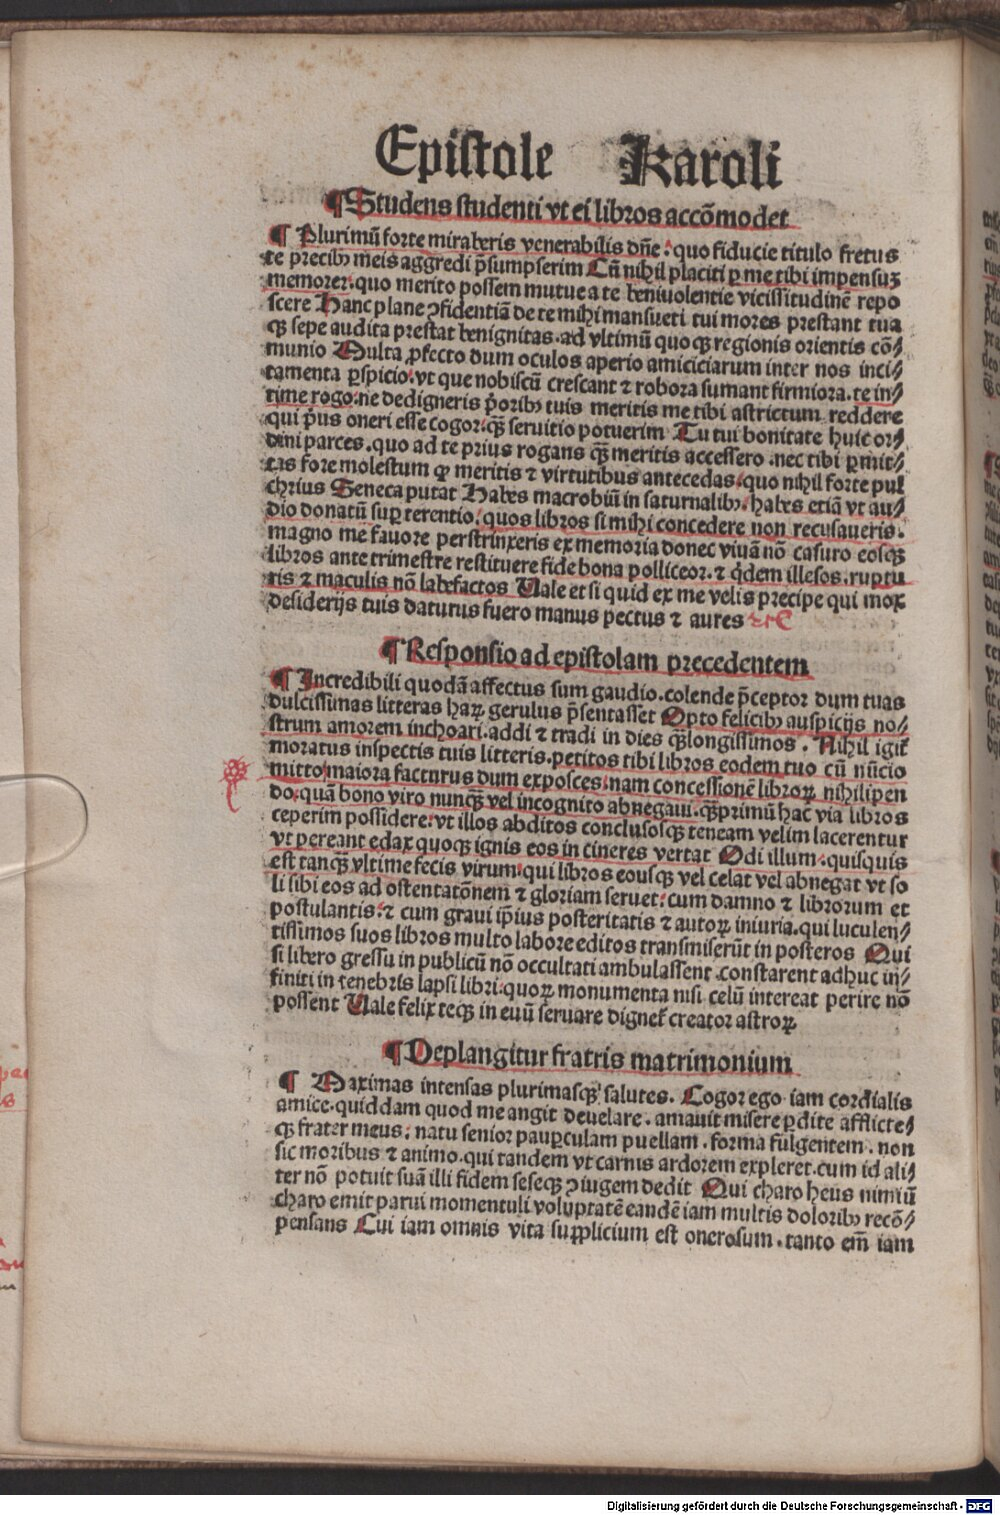 Epistole Karoli
¶ Studens studenti vt ei libros accōmodet
¶ Plurimū forte miraberis venerabilis dñe : quo fiducie titulo fretus
te precibꝫ meis aggredi p̄sumpserim Cū nihil placiti ꝑ me tibi impensuꝫ
memorer: quo merito possem mutue a te beniuolentie vicissitudinē repo
scere Hanc plane ꝯfidentiā de te mihi mansueti tui mores prestant tua
qꝫ sepe audita prestat benignitas. ad vltimū quoqꝫ regionis orientis cō⸗
munio Multa ꝓfecto dum oculos aperio amiciciarum inter nos inci⸗
tamenta ꝑspicio. vt que nobiscū crescant ⁊ robora sumant firmiora. te in⸗
time rogo: ne dedigneris p̄oribꝫ tuis meritis me tibi astrictum reddere
qui p̄us oneri esse cogor: qꝫ̄ seruitio potuerim Tu tui bonitate huic or⸗
dini parces. quo ad te prius rogans qꝫ̄ meritis accessero . nec tibi ꝑmit⸗
tas fore molestum ꝙ meritis ⁊ virtutibus antecedas. quo nihil forte pul
chrius Seneca putat Habes macrobiū in saturnalibꝫ. habes etiā vt au⸗
dio donatū suꝑ terentio. quos libros si mihi concedere non recusaueris.
magno me fauore perstrinxeris ex memoria donec viuā nō casuro eosqꝫ
libros ante trimestre restituere fide bona polliceor. ⁊ q̇dem illesos. ruptu
ris ⁊ maculis nō labefactos Uale et si quid ex me velis precipe qui mox
desiderijs tuis daturus fuero manus pectus ⁊ aures
¶ Responsio ad epistolam precedentem
¶ Incredibili quodā affectus sum gaudio. colende p̄ceptor dum tuas
dulcissimas litteras haꝝ gerulus p̄sentasset Opto felicibꝫ auspicijs no⸗
strum amorem inchoari. addi ⁊ tradi in dies qꝫ̄longissimos . Nihil igit᷑
moratus inspectis tuis litteris. petitos tibi libros eodem tuo cū nūcio
mitto maiora facturus dum exposces: nam concessionē libroꝝ nihilipen
do. quā bono viro nunqꝫ̄ vel incognito abnegaui. qꝫ̄primū hac via libros
ceperim possidere: vt illos abditos conclusosqꝫ teneam velim lacerentur
vt pereant edax quoqꝫ ignis eos in cineres vertat Odi illum. quisquis
est tanqꝫ̄ vltime fecis virum: qui libros eousqꝫ vel celat vel abnegat vt so
li sibi eos ad ostentatōnem ⁊ gloriam seruet: cum damno ⁊ librorum et
postulantis: ⁊ cum graui ip̄ius posteritatis ⁊ autoꝝ iniuria. qui luculen⸗
tissimos suos libros multo labore editos transmiserūt in posteros Qui
si libero gressu in publicū nō occultati ambulassent . constarent adhuc in⸗
finiti in tenebris lapsi libri: quoꝝ monumenta nisi celū intereat perire nō
possent Uale felix teqꝫ in euū seruare dignet᷑ creator astroꝝ
¶ Deplangitur fratris matrimonium
¶ Maximas intensas plurimasqꝫ salutes. Cogor ego iam cordialis
amice. quiddam quod me angit deuelare. amauit misere ꝑdite afflicte⸗
qꝫ frater meus: natu senior pauꝑculam puellam . forma fulgentem . non
sic moribus ⁊ animo. qui tandem vt carnis ardorem expleret. cum id ali⸗
ter nō potuit suā illi fidem seseqꝫ ꝯiugem dedit Qui charo heus nimiū
charo emit parui momentuli voluptatē eandē iam multis doloribꝫ recō⸗
pensans Cui iam omnis vita supplicium est onerosum . tanto em̄ iam
Digitalisierung gefördert durch die Deutsche Forschungsgemeinschaft - DFG